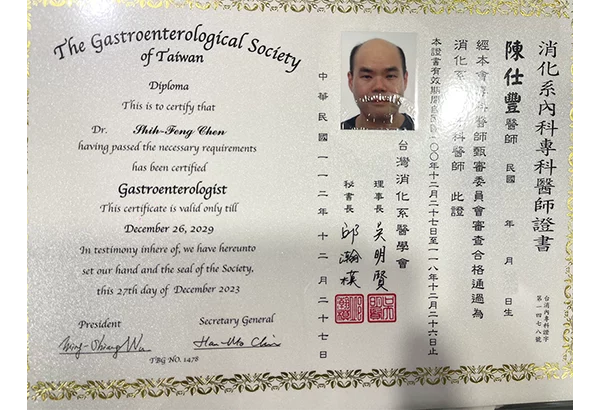 The Gastroenterological Society
of Taiwan
Diploma
This is to certify that
Dr. Shih-Feng Chen
having passed the necessary requirements
has been certified
Gastroenterologist
This certificate is valid only till
December 26, 2029
In testimony inhere of, we have hereunto
set our hand and the seal of the Society,
this 27th day of December 2023
President
Secretary General
TBG NO. 1478
消化系內科專科醫師證書
陳仕豐醫師 民國 年 月 日生
經本會 科醫師甄審委員會審查合格通過為
消化系 科醫師 此證
本證書有效期間自民國一〇〇年十二月二十七日至一一八年十二月二十六日止
台灣消化系醫學會
理事長 吳明賢
秘書長 邱瀚模
中華民國一一二年十二月二十七日
台消內專科證字
第一四七八號